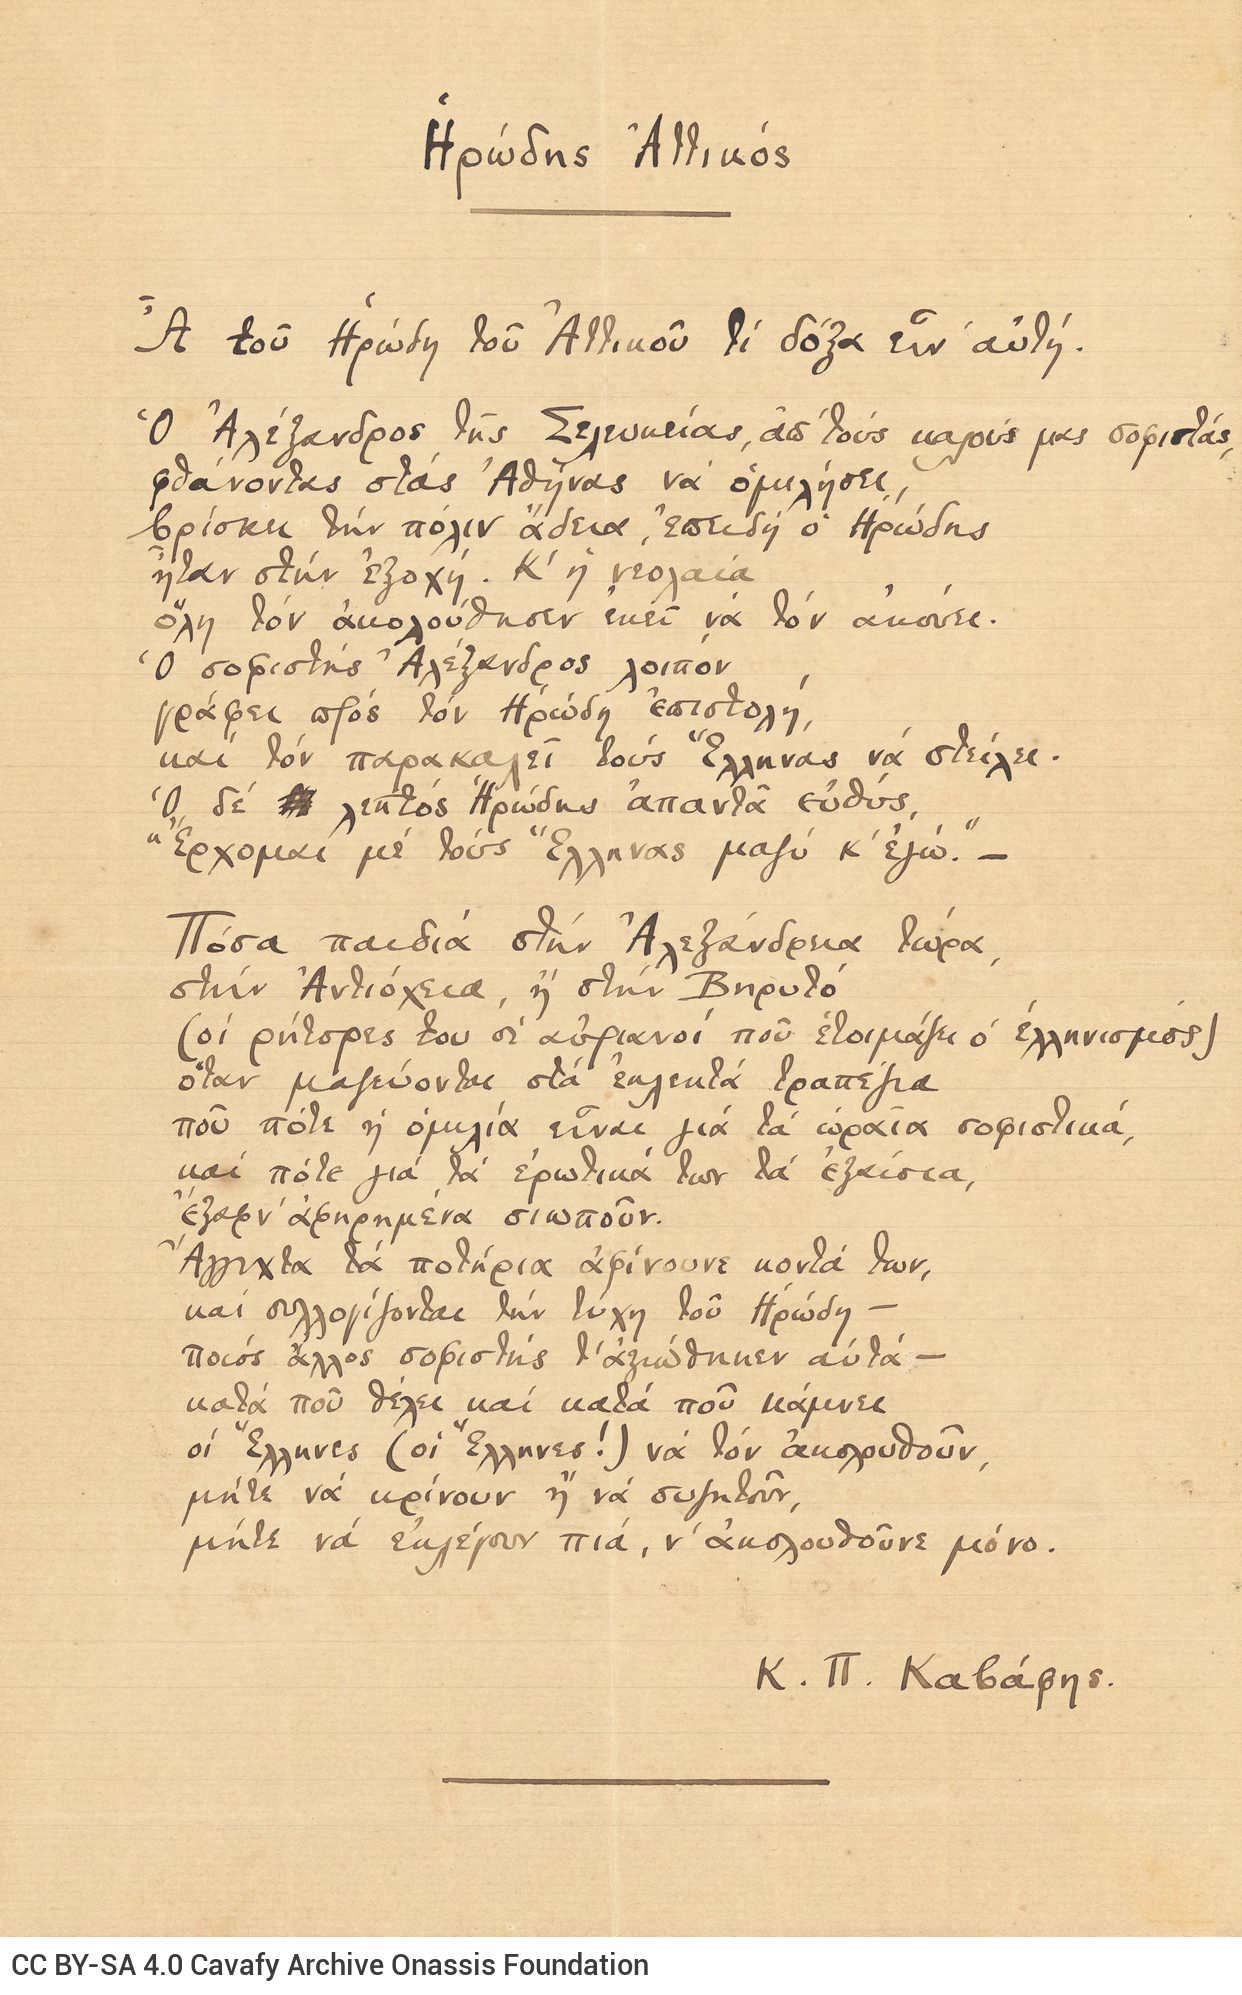 Ἡρώδης Ἀττικός
Ἆ τοῦ Ἡρώδη τοῦ Ἀττικοῦ τί δόξα εἶν' αὐτή.
Ὁ Ἀλέξανδρος τῆς Σελευκείας, ἀπ' τούς καλούς μας σοφιστάς,
φθάνοντας στάς Ἀθήνας νά ὁμιλήσει,
βρίσκει τήν πόλιν ἄδεια, ἐπειδή ὁ Ἡρώδης
ἦταν στήν ἐξοχή. Κ' ἡ νεολαία
ὅλη τόν ἀκολούθησεν ἐκεῖ νά τόν ἀκούει.
Ὁ σοφιστής Ἀλέξανδρος λοιπόν
γράφει πρός τόν Ἡρώδη ἐπιστολή,
καί τόν παρακαλεῖ τούς Ἕλληνας νά στείλει.
Ὁ δέ λεπτός Ἡρώδης ἀπαντᾶ εὐθύς,
"Ἔρχομαι μέ τούς Ἕλληνας μαζύ κ' ἐγώ." —
Πόσα παιδιά στήν Ἀλεξάνδρεια τώρα,
στήν Ἀντιόχεια, ἤ στήν Βηρυτό
(οἱ ρήτορες του οἱ αὐριανοί ποῦ ἑτοιμάζει ὁ ἑλληνισμός)
ὅταν μαζεύονται στά ἐκλεκτά τραπέζια
ποῦ πότε ἡ ὁμιλία εἶναι γιά τά ὡραῖα σοφιστικά,
καί πότε γιά τά ἐρωτικά των τά ἐξαίσια,
ἔξαφν' ἀφηρημένα σιωποῦν.
Ἄγγιχτα τά ποτήρια ἀφίνουνε κοντά των,
καί συλλογίζονται τήν τύχη τοῦ Ἡρώδη —
ποιός ἄλλος σοφιστής τ' ἀξιώθηκεν αὐτά —
κατά ποῦ θέλει καί κατά ποῦ κάμνει
οἱ Ἕλληνες (οἱ Ἕλληνες!) νά τόν ἀκολουθοῦν,
μήτε νά κρίνουν ἤ νά συζητοῦν,
μήτε νά ἐκλέγουν πιά, ν' ἀκολουθοῦνε μόνο.
Κ. Π. Καβάφης.
CC BY-SA 4.0 Cavafy Archive Onassis Foundation